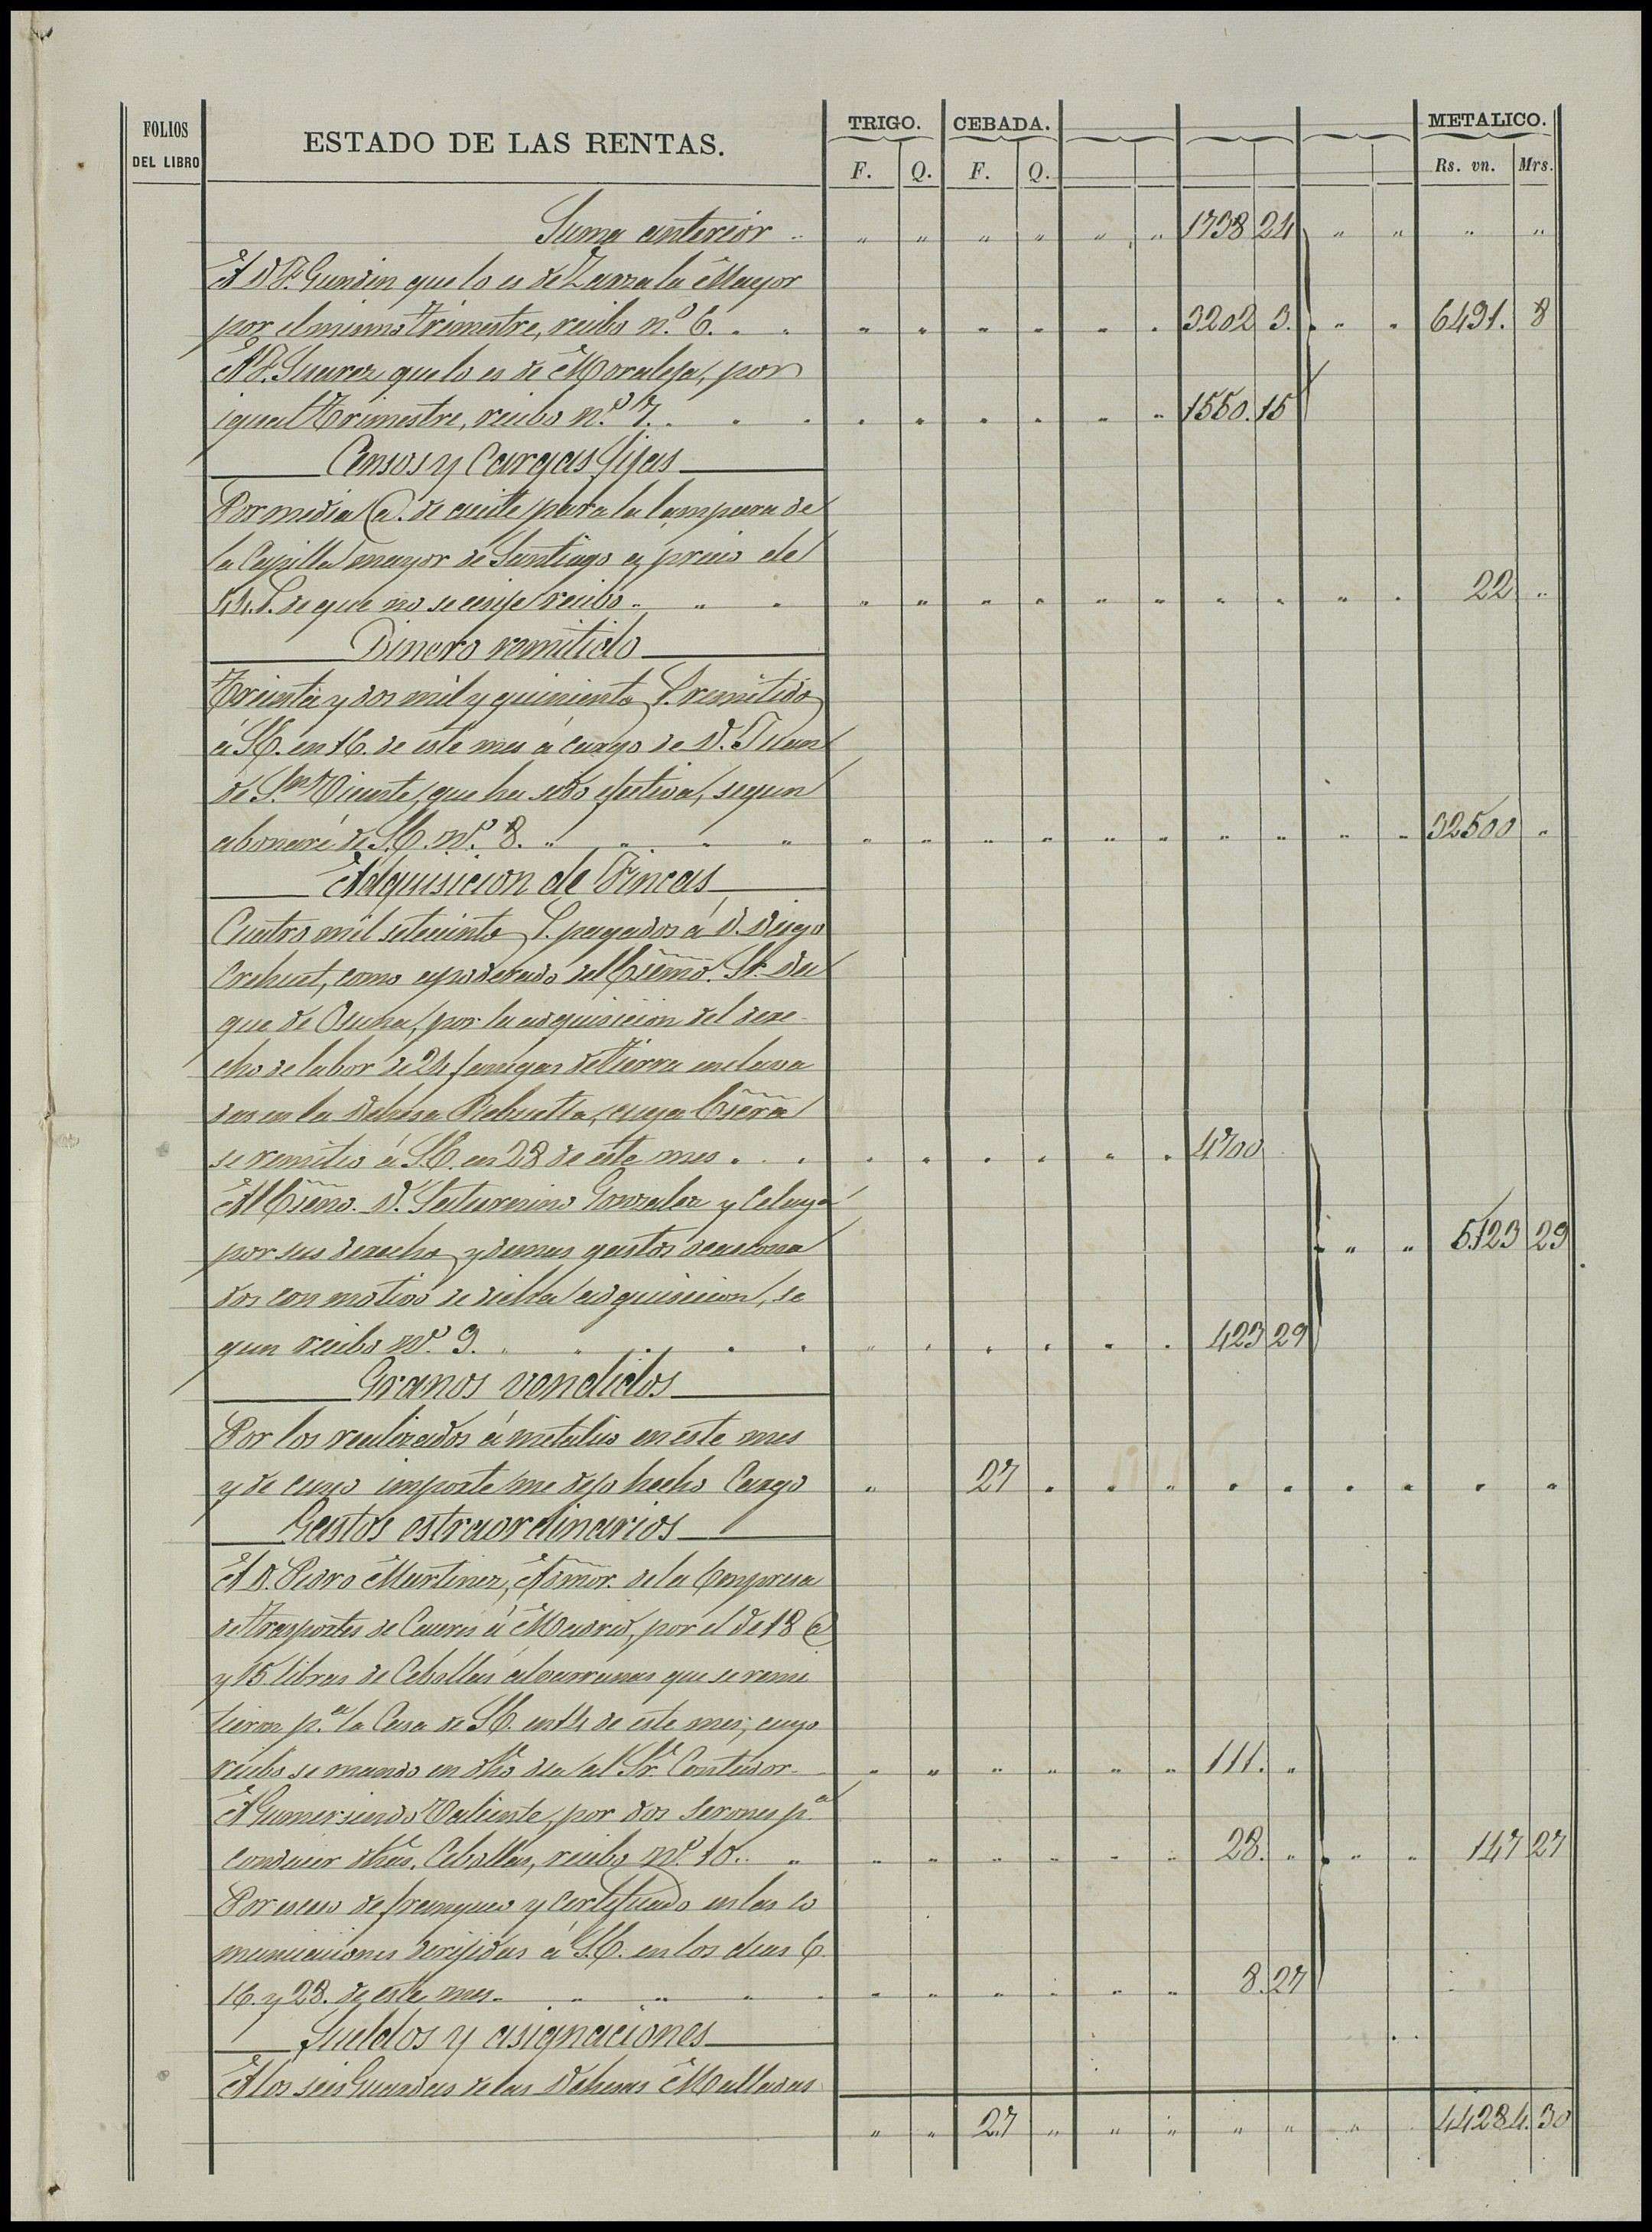 FOLIOS DEL LIBRO
ESTADO DE LAS RENTAS.
TRIGO. CEBADA. METALICO.
F. Q. F. Q. Rs. vn. Mrs.
Suma anterior 1738 24
A D. F. Gundin que lo es de Zarza la Mayor
por el mismo trimestre, recibo n.º 6. 3202 3. 6491. 8
A F. Suarez que lo es de Moraleja, por
igual trimestre, recibo n.º 7. 1550. 15
Censos y Cargas fijas
Por media @. de aceite para la lampara de
la Capilla mayor de Santiago a precio de
44 r. de que no se exije recibo 22
Dinero remitido
Treinta y dos mil y quinientos r. remitidos
á S.E. en 16. de este mes á cargo de D. Juan
de S.n Vicente, que ha sido efectiva, segun
abonaré de S.E. n.º 8. 32500
Adquisicion de Fincas
Cuatro mil setecientos r. pagados á D. Diego
Crehuet, como apoderado del Excmo. Sr. Du
que de Osuna, por la adquisicion del dere-
cho de labor de 24 fanegas de tierra enclava
das en la Dehesa Rehuelta, cuya Escra
se remitio á S.E. en 28 de este mes 4700
Al Escno. D. Saturnino Gonzalez y Celaya
por sus derechos y demas gastos ocasiona
dos con motivo de dicha adquisicion, se
gun recibo n.º 9. 423 29 5123 29
Granos vendidos
Por los realizados á metalico en este mes
y de cuyo importe me dejo hecho Cargo 27
Gastos estraordinarios
A D. Pedro Martinez, Admor. de la Empresa
de trasportes de Caceres á Madrid, por el de 18 @
y 15 libras de Cebollas albarranas que se remi
tieron p.a la Casa de S.E. en 14 de este mes; cuyo
recibo se mando en dho dia al Sr. Contador 111.
A Gumersindo Valiente, por dos serones p.a
conducir dhas. Cebollas, recibo n.º 10. 28. 147 27
Por esceso de franqueo y certificado en las co
municaciones dirijidas á S.E. en los dias 6.
16. y 28. de este mes 8. 27
Sueldos y asignaciones
A los seis Guardas de las Dehesas Malladas
27 44284. 30